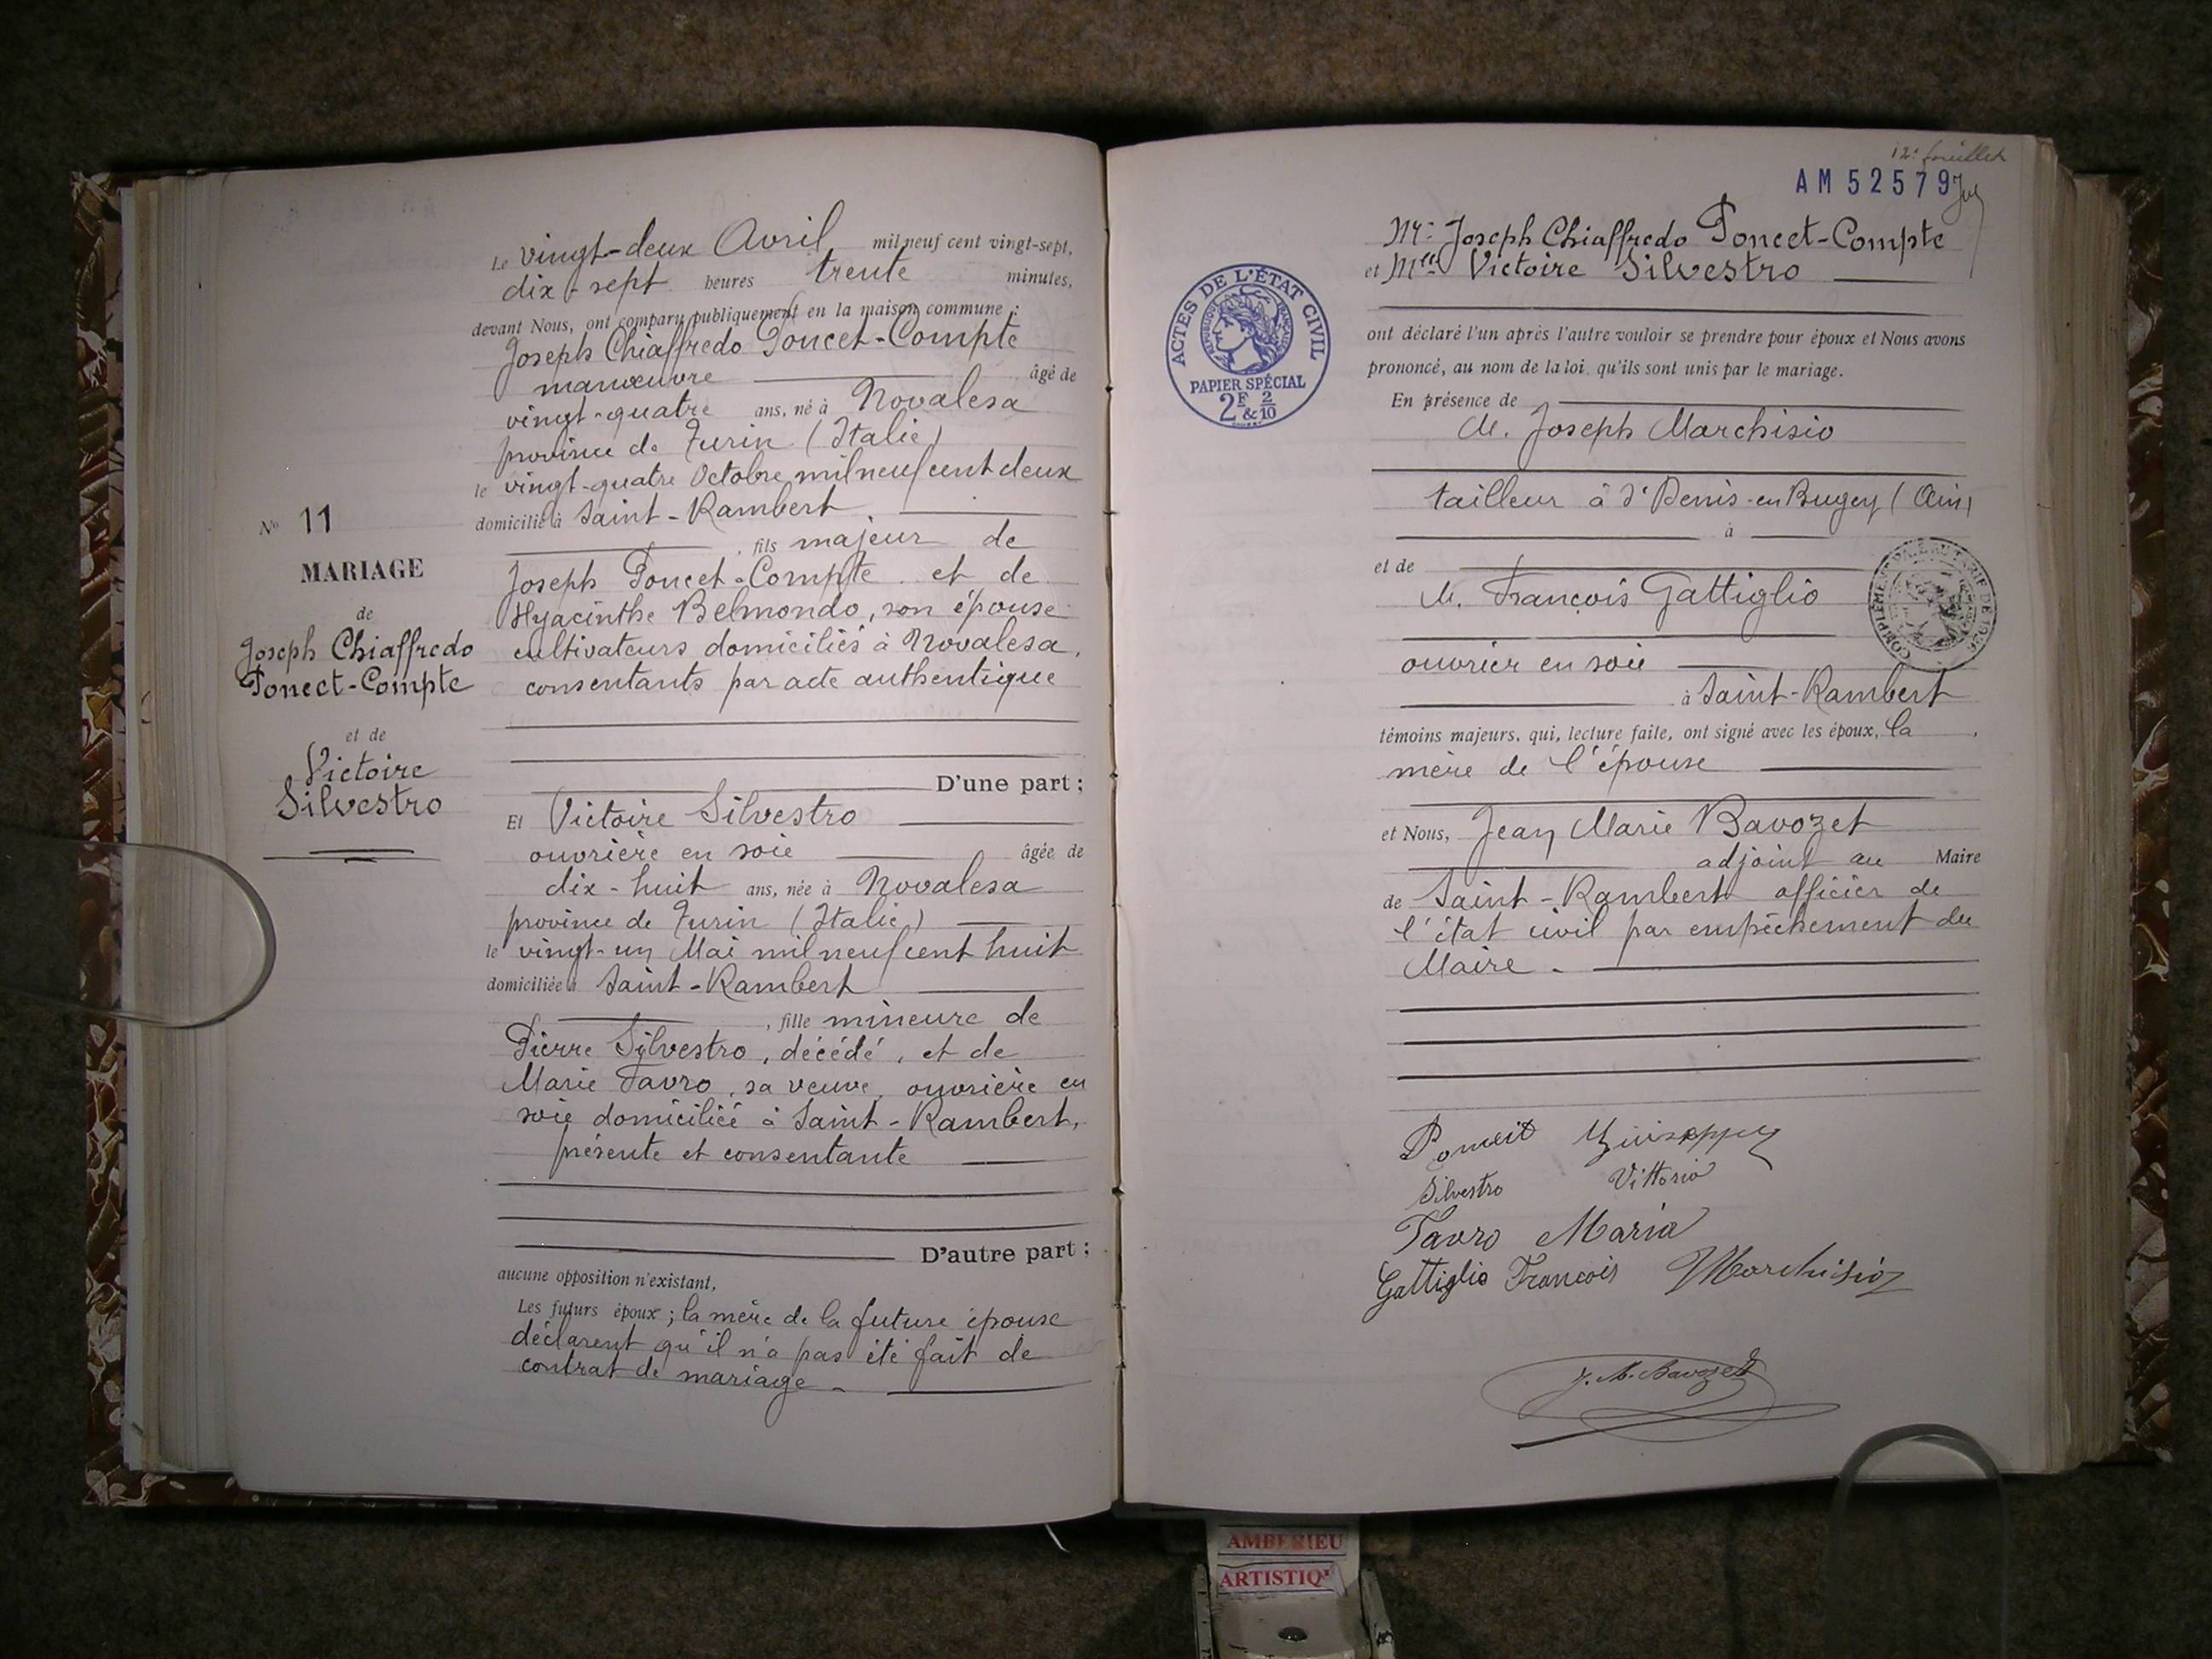 Le vingt-deux Avril mil neuf cent vingt-sept,
dix-sept heures trente minutes,
devant Nous, ont comparu publiquement en la maison commune :
Joseph Chiaffredo Poncet-Compte
manœuvre âgé de
vingt-quatre ans, né à Novalesa
province de Turin (Italie)
le vingt-quatre Octobre mil neuf cent deux
domicilié à Saint-Rambert
, fils majeur de
Joseph Poncet-Compte et de
Hyacinthe Belmondo, son épouse
cultivateurs domiciliés à Novalesa,
consentants par acte authentique
D'une part ;
Et Victoire Silvestro
ouvrière en soie âgée de
dix-huit ans, née à Novalesa
province de Turin (Italie)
le vingt-un Mai mil neuf cent huit
domiciliée à Saint-Rambert
, fille mineure de
Pierre Silvestro, décédé, et de
Marie Favro, sa veuve, ouvrière en
soie domiciliée à Saint-Rambert,
présente et consentante
D'autre part ;
aucune opposition n'existant,
Les futurs époux ; la mère de la future épouse
déclarent qu'il n'a pas été fait de
contrat de mariage -
N° 11
MARIAGE
de
Joseph Chiaffredo
Poncet-Compte
et de
Victoire
Silvestro
12e feuillet
AM 52579
Mr. Joseph Chiaffredo Poncet-Compte
et Mlle Victoire Silvestro
ont déclaré l'un après l'autre vouloir se prendre pour époux et Nous avons
prononcé, au nom de la loi, qu'ils sont unis par le mariage.
En présence de
M. Joseph Marchisio
tailleur à St Denis-en-Bugey (Ain)
à
et de
M. François Gattiglio
ouvrier en soie
à Saint-Rambert
témoins majeurs, qui, lecture faite, ont signé avec les époux, la
mère de l'épouse
et Nous, Jean Marie Bavozet
adjoint au Maire
de Saint-Rambert officier de
l'état civil par empêchement du
Maire -
ACTES DE L'ÉTAT CIVIL
RÉPUBLIQUE FRANÇAISE
PAPIER SPÉCIAL
2F & 2/10
Giuseppe
Silvestro Vittoria
Favro Maria
Gattiglio François Marchisio
J. M. Bavozet
AMBERIEU
ARTISTIQ